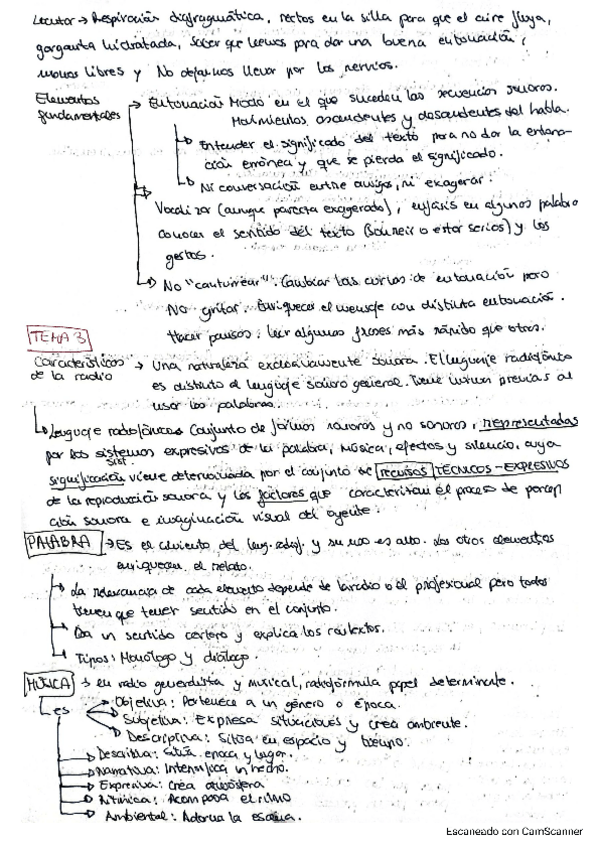 Locutor → Respiración diafragmática, rectos en la silla para que el aire fluya,
garganta hidratada, saber que leemos para dar una buena entonación,
manos libres y No dejarnos llevar por los nervios.
Elementos
fundamentales
→ Entonación Modo en el que suceden las secuencias sonoras.
Movimientos ascendentes y descendentes del habla.
↳ Entender el significado del texto para no dar la entona-
ción errónea y que se pierda el significado.
↳ Ni conversación entre amigos, ni exagerar.
→ Vocalizar (aunque parezca exagerado), énfasis en algunas palabra
conocer el sentido del texto (sonreír o estar serios) y los
gestos.
→ No "canturrear". Cambiar las curvas de entonación pero
No gritar. Enriquecer el mensaje con distinta entonación.
Hacer pausas. Leer algunas frases más rápido que otras.
TEMA 3
Características
de la radio
→ Una naturaleza exclusivamente sonora. El lenguaje radiofónico
es distinto al lenguaje sonoro general. Tiene previas al
usar las palabras.
↳ Lenguaje radiofónico: Conjunto de formas sonoras y no sonoras, representadas
por los sistemas expresivos de la palabra, música, efectos y silencio, cuya
significación viene determinada por el conjunto de recursos TÉCNICOS-EXPRESIVOS
de la reproducción sonora y los factores que caracterizan el proceso de percep
ción sonora e imaginación visual del oyente.
PALABRA → Es el cimiento del leng. radiof. y su uso es alto. Los otros elementos
enriquecen el relato.
→ La relevancia de cada elemento depende de la radio o el profesional pero todos
tienen que tener sentido en el conjunto.
→ Da un sentido certero y explica los contextos.
↳ Tipos: Monólogo y diálogo.
MÚSICA → en radio generalista y musical, radiofórmula papel determinante.
↳ es
Objetiva: Pertenece a un género o época.
Subjetiva: Expresa situaciones y crea ambiente.
Descriptiva: Sitúa en espacio y tiempo.
→ Descriptiva: Sitúa época y lugar.
→ Narrativa: Intensifica un hecho.
→ Expresiva: Crea atmósfera
→ Rítmica: Acompaña el ritmo
→ Ambiental: Adorna la escena.
Escaneado con CamScanner